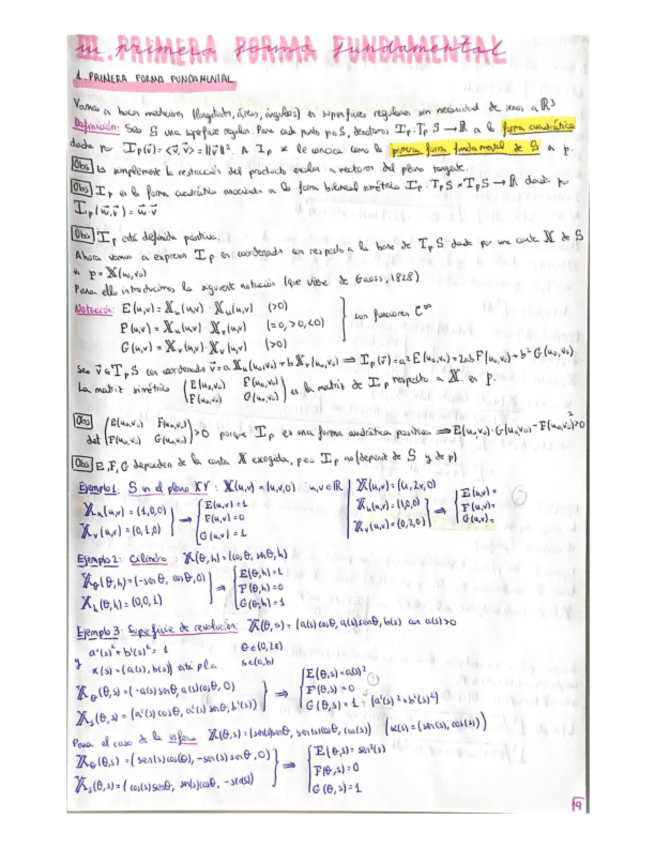 III. PRIMERA FORMA FUNDAMENTAL
1. PRIMERA FORMA FUNDAMENTAL
Vamos a hacer mediciones (longitudes, áreas, ángulos) en superficies regulares sin necesidad de irnos a ℝ³
Definición: Sea S una superficie regular. Para cada punto p∈S, denotamos I_p: T_pS → ℝ a la forma cuadrática
dada por I_p(v⃗) = <v⃗, v⃗> = ||v⃗||². A I_p se le conoce como la primera forma fundamental de S en p.
Obs Es simplemente la restricción del producto escalar a vectores del plano tangente.
Obs I_p es la forma cuadrática asociada a la forma bilineal simétrica I_p: T_pS × T_pS → ℝ dada por
I_p(w⃗, v⃗) = w⃗·v⃗
Obs I_p está definida positiva.
Ahora vamos a expresar I_p en coordenadas con respecto a la base de T_pS dada por una carta X de S
en p = X(u₀,v₀)
Para ello introducimos la siguiente notación (que viene de Gauss, 1828)
Notación: E(u,v) = X_u(u,v) · X_u(u,v) (>0)
F(u,v) = X_u(u,v) · X_v(u,v) (=0, >0, <0) } son funciones C^∞
G(u,v) = X_v(u,v) · X_v(u,v) (>0)
Sea v⃗ ∈ T_pS con coordenadas v⃗ = a X_u(u₀,v₀) + b X_v(u₀,v₀) ⇒ I_p(v⃗) = a² E(u₀,v₀) + 2ab F(u₀,v₀) + b² G(u₀,v₀)
La matriz simétrica (E(u₀,v₀) F(u₀,v₀)
F(u₀,v₀) G(u₀,v₀)) es la matriz de I_p respecto a X en p.
Obs
det (E(u₀,v₀) F(u₀,v₀)
F(u₀,v₀) G(u₀,v₀)) > 0 porque I_p es una forma cuadrática positiva ⇒ E(u₀,v₀)·G(u₀,v₀) - F(u₀,v₀)² > 0
Obs E, F, G dependen de la carta X escogida, pero I_p no (depende de S y de p)
Ejemplo 1: S en el plano XY: X(u,v) = (u,v,0) u,v∈ℝ
X_u(u,v) = (1,0,0)
X_v(u,v) = (0,1,0) ⇒ { E(u,v) = 1
F(u,v) = 0
G(u,v) = 1
X(u,v) = (u,2v,0)
X_u(u,v) = (1,0,0)
X_v(u,v) = (0,2,0) ⇒ { E(u,v) =
F(u,v) =
G(u,v) =
Ejemplo 2: Cilindro: X(θ,h) = (cos θ, sen θ, h)
X_θ(θ,h) = (-sen θ, cos θ, 0)
X_h(θ,h) = (0,0,1) ⇒ { E(θ,h) = 1
F(θ,h) = 0
G(θ,h) = 1
Ejemplo 3: Superficie de revolución: X(θ,s) = (a(s)cosθ, a(s)senθ, b(s)) con a(s)>0
a'(s)² + b'(s)² = 1 θ∈(0,2π)
y α(s) = (a(s), b(s)) está pla s∈(a,b)
X_θ(θ,s) = (-a(s)senθ, a(s)cosθ, 0)
X_s(θ,s) = (a'(s)cosθ, a'(s)senθ, b'(s)) ⇒ { E(θ,s) = a(s)²
F(θ,s) = 0
G(θ,s) = 1 (a'(s)² + b'(s)²)
Para el caso de la esfera: X(θ,s) = (sen(s)senθ, sen(s)cosθ, cos(s)) (α(s) = (sen(s), cos(s)))
X_θ(θ,s) = (sen(s)cos(θ), -sen(s)senθ, 0)
X_s(θ,s) = (cos(s)senθ, cos(s)cosθ, -sen(s)) ⇒ { E(θ,s) = sen²(s)
F(θ,s) = 0
G(θ,s) = 1
9